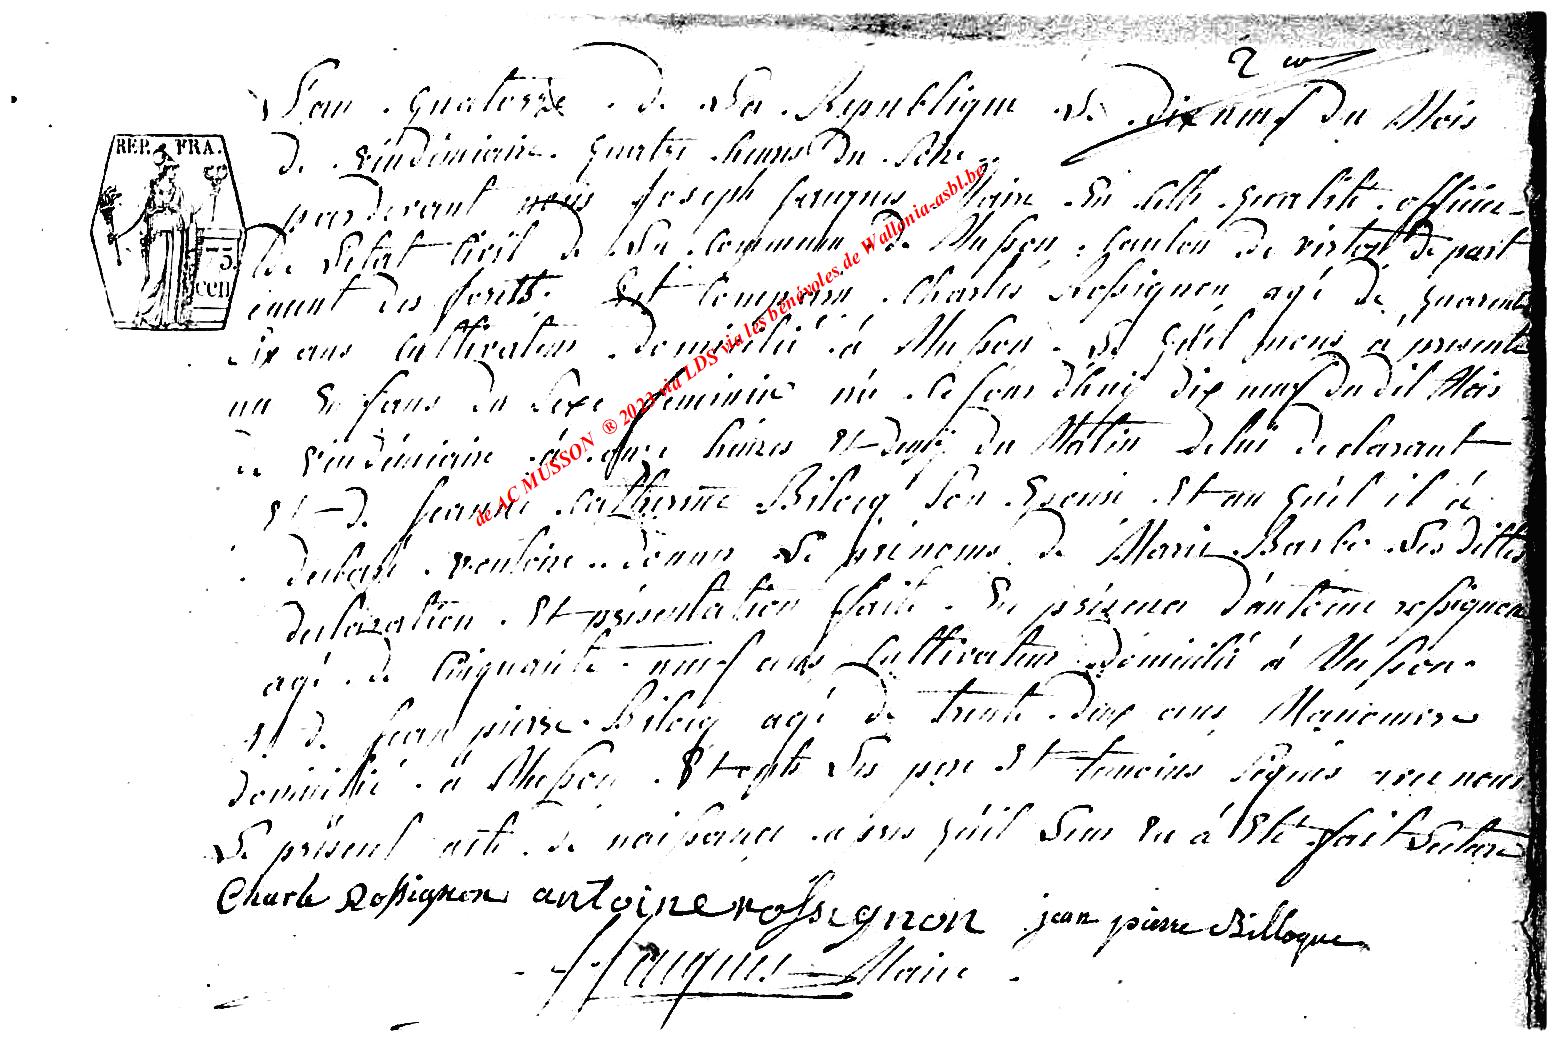 2
L'an quatorze de la Republique le dix neuf du Mois
de vindémiaire quatre heures du soire
REP. FRA.
pardevant nous Joseph Jacques Maire en cette qualité officier
de l'etat Civil de la commune de Musson canton de virton depart
3.
cen
ement des forêts. Est comparu Charles Rossignon agé de quarente
six ans cultivateur domicilié à Musson le quel nous à presenté
un Enfans du sexe feminin né le jour d'huy dix neuf du dit Mois
de vindémiaire à onze heures et demy du Matin de lui declarant
et de Jeanne Catherine Bilocq son Epouse et au quel il à
declaré vouloire donner le prénoms de Marie Barbe les dittes
declaration et présentation faite en présence d'antoine rossignon
agé de cinquante neuf ans cultivateur domicilié à Musson
et de Jean pierre Bilocq agé de trente deux ans Manouvre
domicilié à Musson et ont les pere et temoins signés avec nous
le présent acte de naissance apres qu'il leur en à été fait lecture
Charle Rossignon antoine rossignon jean pierre Billoque
J Jacques Maire
de AC MUSSON ® 2023 via LDS via les bénévoles de Wallonia-asbl.be